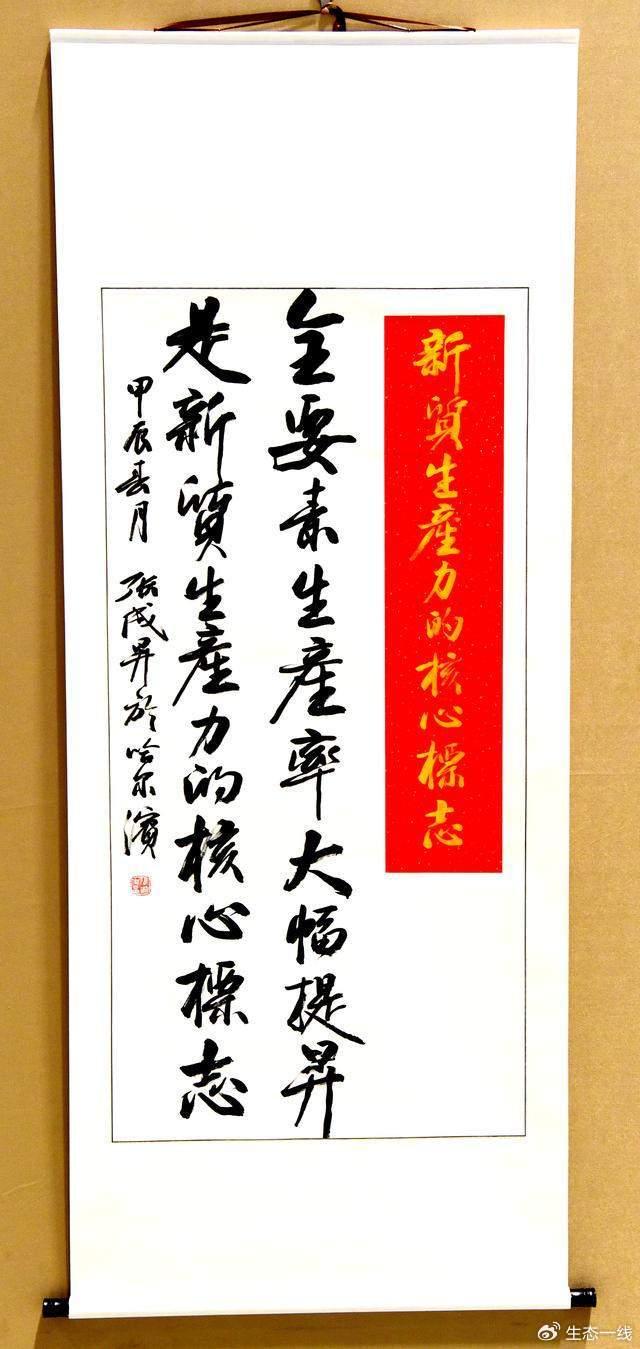 新質生產力的核心標志
全要素生產率大幅提昇
是新質生產力的核心標志
甲辰春月 張成昇於哈尔濱
生态一线